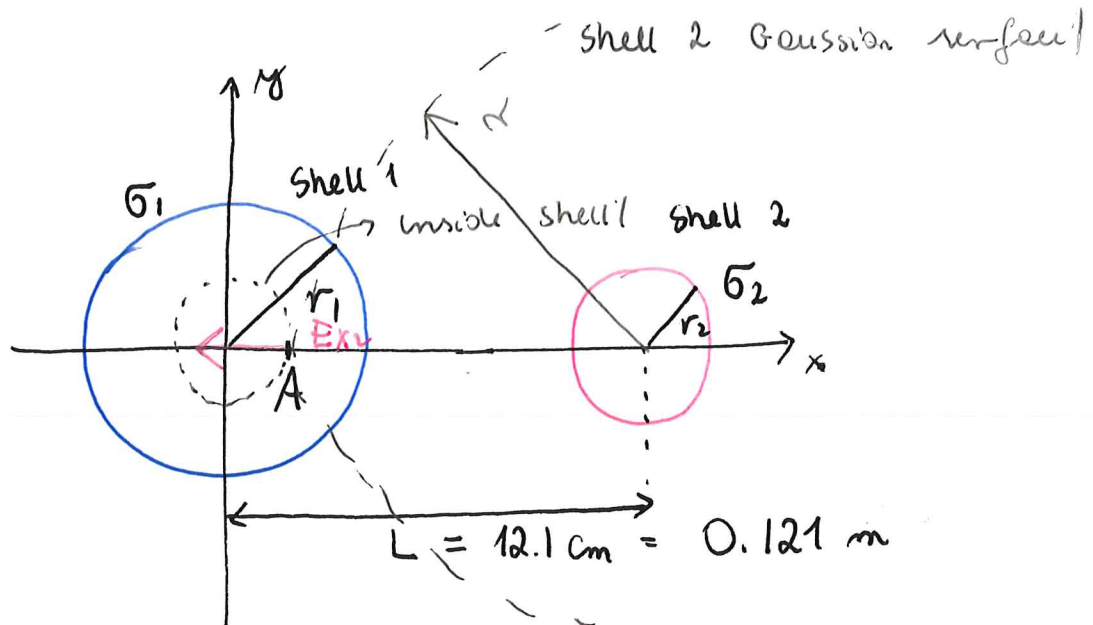 shell 2 Gaussian surface
y
r
shell 1
σ1
inside shell 1
shell 2
σ2
r1
r2
Ex2
x
A
L = 12.1 cm = 0.121 m